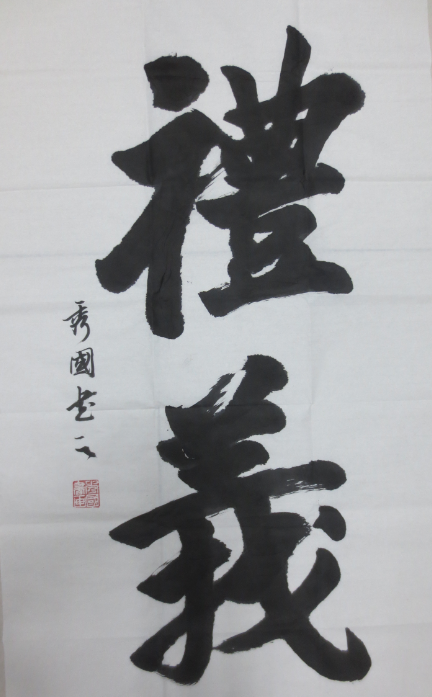 禮義
秀國書之